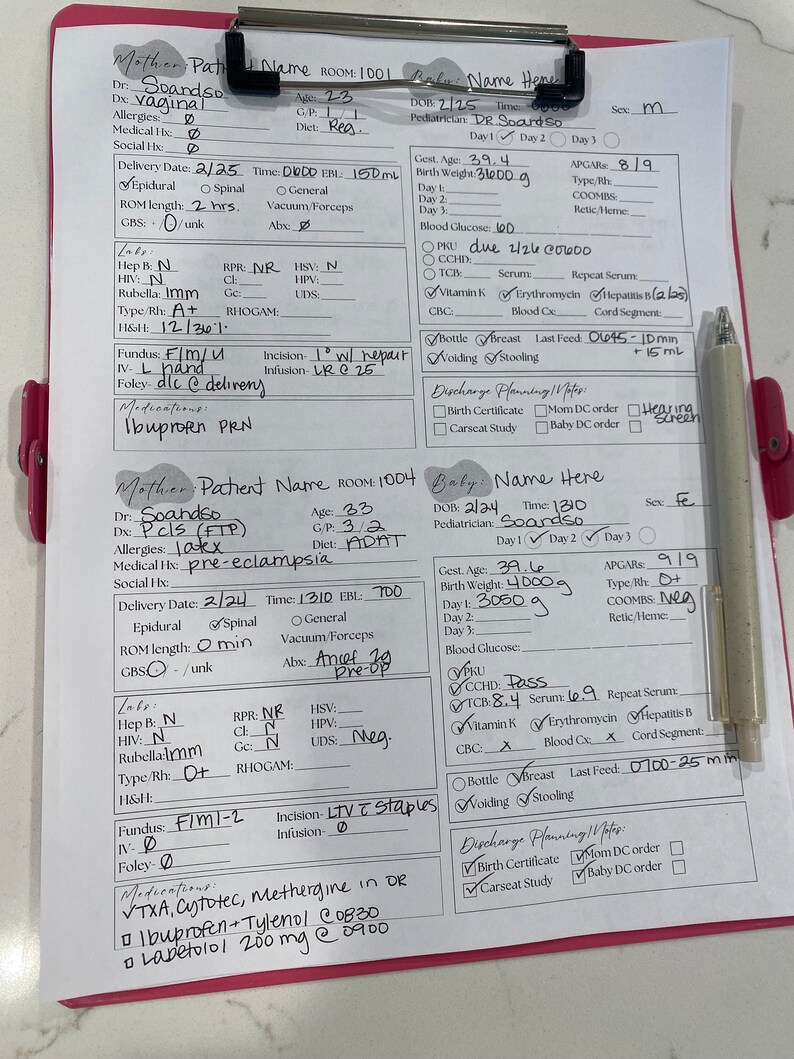 Mother: Patient Name ROOM: 1001
Dr: Soandso
Dx: vaginal Age: 23
Allergies: Ø G/P: 1 / 1
Medical Hx: Ø Diet: Reg.
Social Hx: Ø
Delivery Date: 2/25 Time: 0600 EBL: 150mL
Epidural Spinal General
ROM length: 2 hrs. Vacuum/Forceps
GBS: + / - / unk Abx: Ø
Labs:
Hep B: N RPR: NR HSV: N
HIV: N Cl: HPV:
Rubella: Imm Gc: UDS:
Type/Rh: A+ RHOGAM:
H&H: 12/36%
Fundus: F/m/u Incision- 1° w/ repair
IV- L hand Infusion- LR @ 25
Foley- d/c @ delivery
Medications:
Ibuprofen PRN
Baby: Name Here
DOB: 2/25 Time: Sex: m
Pediatrician: DR. Soandso
Day 1 Day 2 Day 3
Gest. Age: 39.4 APGARs: 8/9
Birth Weight: 3600 g Type/Rh:
Day 1: COOMBS:
Day 2: Retic/Heme:
Day 3:
Blood Glucose: 60
PKU due 2/26 @0600
CCHD:
TCB: Serum: Repeat Serum:
Vitamin K Erythromycin Hepatitis B (2/25)
CBC: Blood Cx: Cord Segment:
Bottle Breast Last Feed: 0645 - 10min
+ 15 mL
Voiding Stooling
Discharge Planning/Notes:
Birth Certificate Mom DC order Hearing
screen
Carseat Study Baby DC order
Mother: Patient Name ROOM: 1004
Dr: Soandso Age: 33
Dx: P c/s (FTP) G/P: 3/2
Allergies: latex Diet: ADAT
Medical Hx: pre-eclampsia
Social Hx:
Delivery Date: 2/24 Time: 1310 EBL: 700
Epidural Spinal General
ROM length: 0 min Vacuum/Forceps
GBS: + / - / unk Abx: Ancef 2g
pre-op
Labs:
Hep B: N RPR: NR HSV:
HIV: N Cl: N HPV:
Rubella: Imm Gc: N UDS: Neg.
Type/Rh: O+ RHOGAM:
H&H:
Fundus: F/M/-2 Incision- LTV c̄ staples
IV- Ø Infusion- Ø
Foley- Ø
Medications:
✓TXA, Cytotec, Methergine in OR
□ Ibuprofen + Tylenol @ 0830
□ Labetolol 200 mg @ 0900
Baby: Name Here
DOB: 2/24 Time: 1310 Sex: Fe
Pediatrician: Soandso
Day 1 Day 2 Day 3
Gest. Age: 39.6 APGARs: 9/9
Birth Weight: 4000 g Type/Rh: O+
Day 1: 3050 g COOMBS: Neg
Day 2: Retic/Heme:
Day 3:
Blood Glucose:
PKU
CCHD: Pass
TCB: 8.4 Serum: 6.9 Repeat Serum:
Vitamin K Erythromycin Hepatitis B
CBC: x Blood Cx: x Cord Segment:
Bottle Breast Last Feed: 0700-25 min
Voiding Stooling
Discharge Planning/Notes:
Birth Certificate Mom DC order
Carseat Study Baby DC order